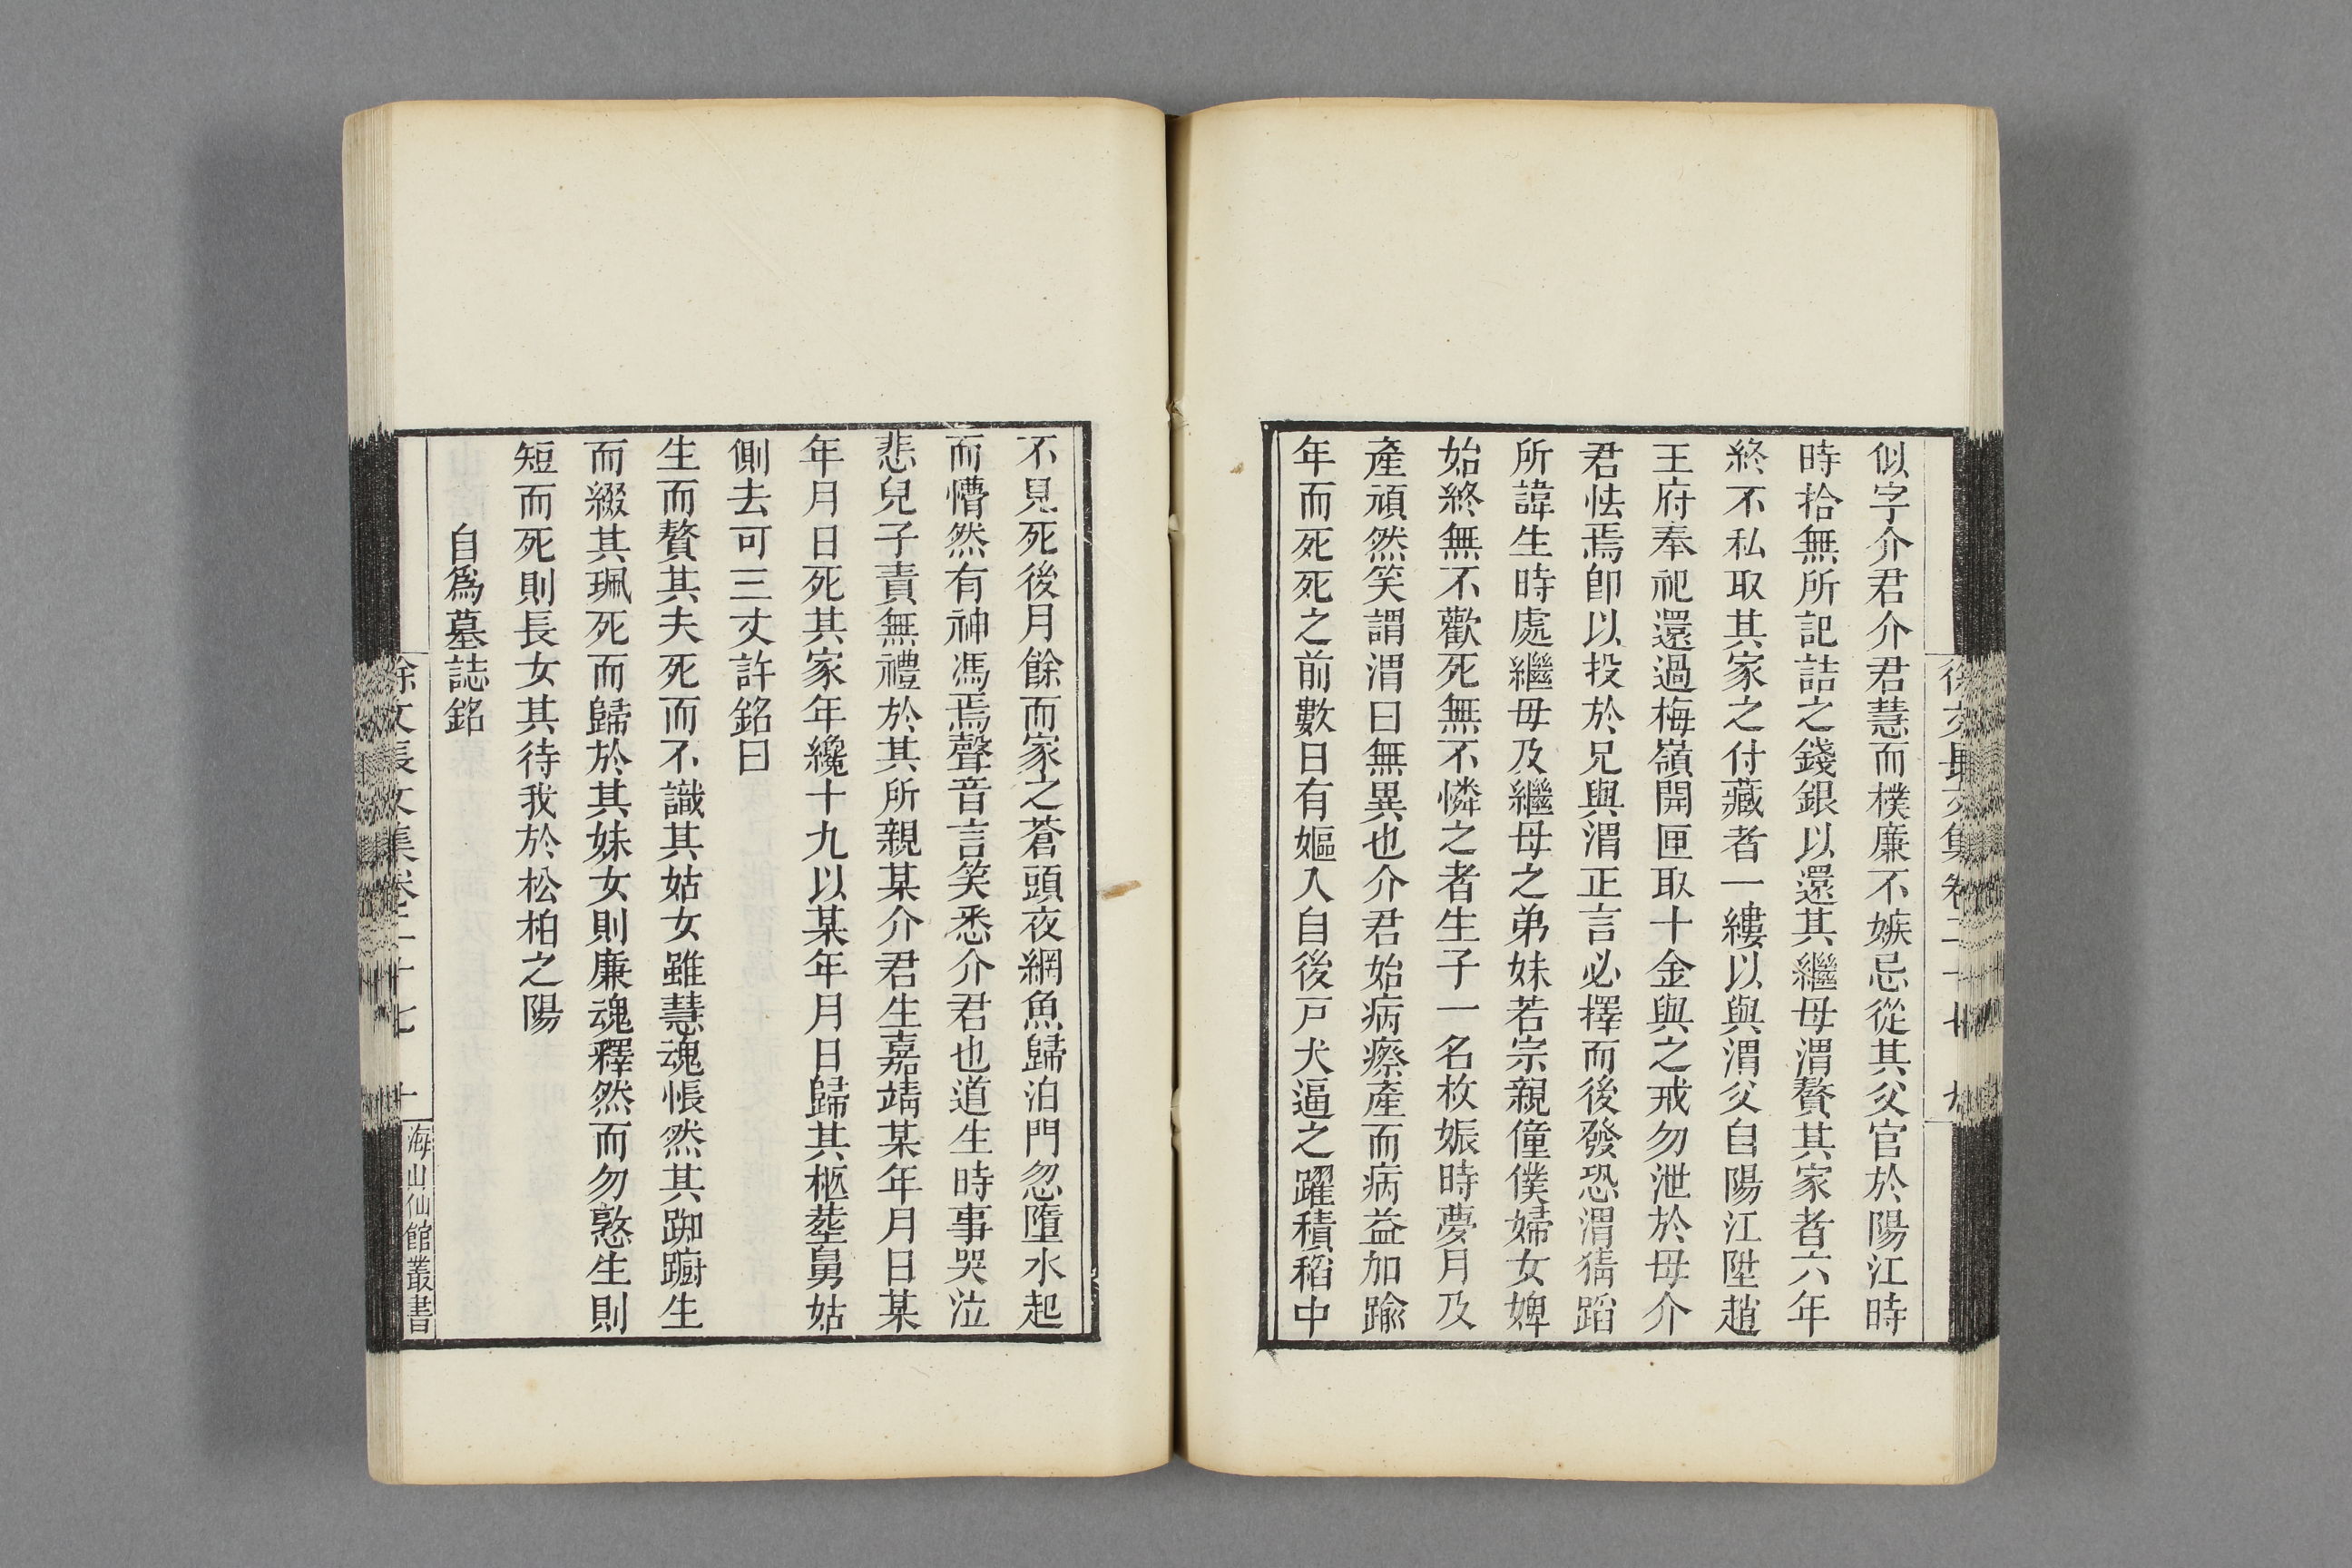 似字介君介君慧而樸廉不嫉忌從其父官於陽江時
時拾無所記詰之錢銀以還其繼母渭贅其家者六年
終不私取其家之付藏者一縷以與渭父自陽江陞趙
王府奉祀還過梅嶺開匣取十金與之戒勿泄於母介
君怯焉卽以投於兄與渭正言必擇而後發恐渭猜蹈
所諱生時處繼母及繼母之弟妹若宗親僮僕婦女婢
始終無不歡死無不憐之者生子一名枚娠時夢月及
產頑然笑謂渭曰無異也介君始病瘵產而病益加踰
年而死死之前數日有嫗入自後戸犬逼之躍積稻中
不見死後月餘而家之蒼頭夜網魚歸泊門忽墮水起
而懵然有神馮焉聲音言笑悉介君也道生時事哭泣
悲兒子責無禮於其所親某介君生嘉靖某年月日某
年月日死其家年纔十九以某年月日歸其柩塟舅姑
側去可三丈許銘曰
生而贅其夫死而不識其姑女雖慧魂悵然其踟躕生
而綴其珮死而歸於其妹女則廉魂釋然而勿憝生則
短而死則長女其待我於松柏之陽
自爲墓誌銘
徐文長文集卷二十七 十
海山仙館叢書